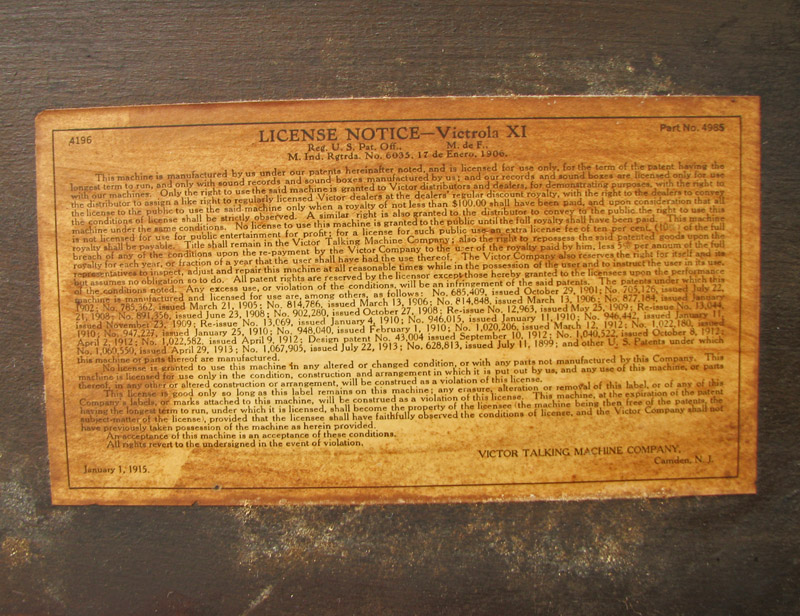 4196
LICENSE NOTICE—Victrola XI
Part No. 4985
Reg. U. S. Pat. Off., M. de F.,
M. Ind. Rgtrda. No. 6035, 17 de Enero, 1906.
This machine is manufactured by us under our patents hereinafter noted, and is licensed for use only, for the term of the patent having the
longest term to run, and only with sound records and sound-boxes manufactured by us; and our records and sound boxes are licensed only for use
with our machines. Only the right to use the said machine is granted to Victor distributors and dealers, for demonstrating purposes, with the right to
the distributor to assign a like right to regularly licensed Victor dealers at the dealers' regular discount royalty, with the right to the dealers to convey
the license to the public to use the said machine only when a royalty of not less than $100.00 shall have been paid, and upon consideration that all
the conditions of license shall be strictly observed. A similar right is also granted to the distributor to convey to the public the right to use this
machine under the same conditions. No license to use this machine is granted to the public until the full royalty shall have been paid. This machine
is not licensed for use for public entertainment for profit; for a license for such public use an extra license fee of ten per cent. (10%) of the full
royalty shall be payable. Title shall remain in the Victor Talking Machine Company; also the right to repossess the said patented goods upon the
breach of any of the conditions upon the re-payment by the Victor Company to the user of the royalty paid by him, less 5% per annum of the full
royalty for each year, or fraction of a year that the user shall have had the use thereof. The Victor Company also reserves the right for itself and its
representatives to inspect, adjust and repair this machine at all reasonable times while in the possession of the user and to instruct the user in its use,
but assumes no obligation so to do. All patent rights are reserved by the licensor except those hereby granted to the licensees upon the performance
of the conditions noted. Any excess use, or violation of the conditions, will be an infringement of the said patents. The patents under which this
machine is manufactured and licensed for use are, among others, as follows: No. 685,409, issued October 29, 1901; No. 705,126, issued July 22,
1902; No. 785,362, issued March 21, 1905; No. 814,786, issued March 13, 1906; No. 814,848, issued March 13, 1906; No. 877,184, issued January
21, 1908; No. 891,356, issued June 23, 1908; No. 902,280, issued October 27, 1908; Re-issue No. 12,963, issued May 25, 1909; Re-issue No. 13,044,
issued November 23, 1909; Re-issue No. 13,069, issued January 4, 1910; No. 946,015, issued January 11, 1910; No. 946,442, issued January 11,
1910; No. 947,227, issued January 25, 1910; No. 948,040, issued February 1, 1910; No. 1,020,206, issued March 12, 1912; No. 1,022,180, issued
April 2, 1912; No. 1,022,582, issued April 9, 1912; Design patent No. 43,004 issued September 10, 1912; No. 1,040,522, issued October 8, 1912;
No. 1,060,550, issued April 29, 1913; No. 1,067,905, issued July 22, 1913; No. 628,813, issued July 11, 1899; and other U. S. Patents under which
this machine or parts thereof are manufactured.
No license is granted to use this machine in any altered or changed condition, or with any parts not manufactured by this Company. This
machine is licensed for use only in the condition, construction and arrangement in which it is put out by us, and any use of this machine, or parts
thereof, in any other or altered construction or arrangement, will be construed as a violation of this license.
This license is good only so long as this label remains on this machine; any erasure, alteration or removal of this label, or of any of this
Company's labels, or marks attached to this machine, will be construed as a violation of this license. This machine, at the expiration of the patent
having the longest term to run, under which it is licensed, shall become the property of the licensee (the machine being then free of the patents, the
subject-matter of the license), provided that the licensee shall have faithfully observed the conditions of license, and the Victor Company shall not
have previously taken possession of the machine as herein provided.
An acceptance of this machine is an acceptance of these conditions.
All rights revert to the undersigned in the event of violation.
VICTOR TALKING MACHINE COMPANY,
January 1, 1915.
Camden, N. J.